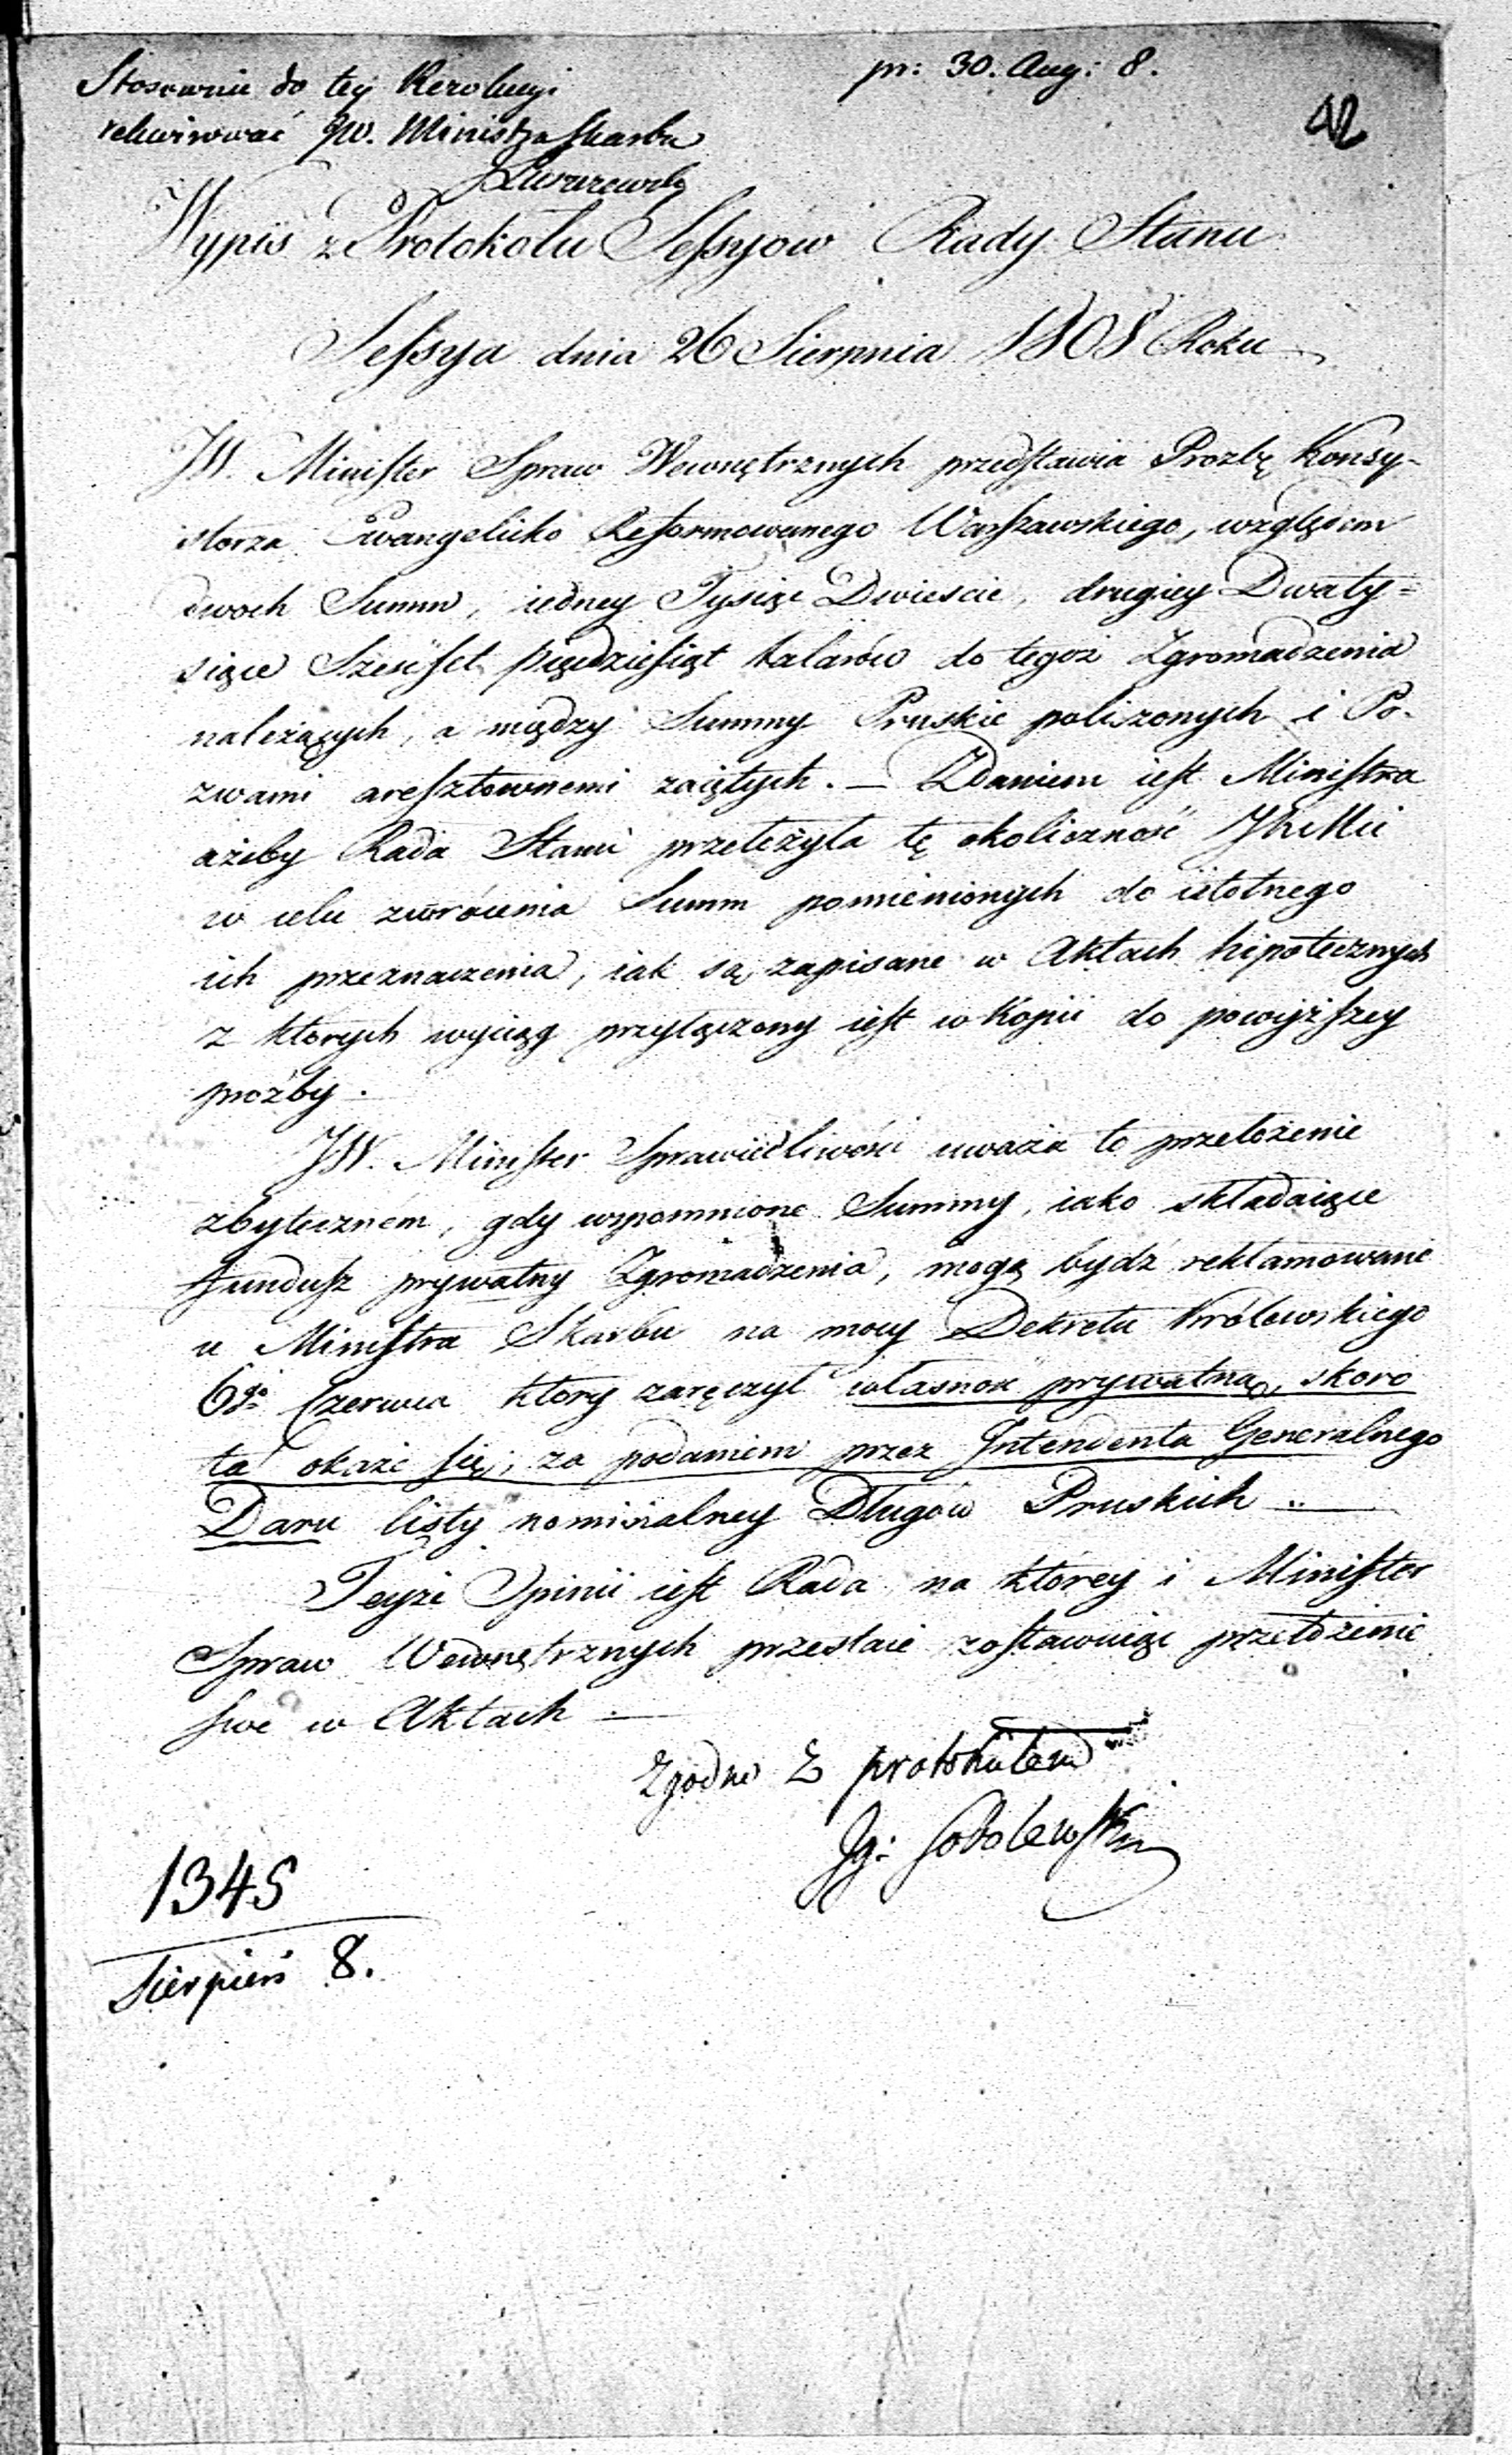 Stosownie do tey Rezolucyi
pr: 30. Aug: 8.
rekwirować JW. Ministra Skarbu
42
Łuszczewski
Wypis z Protokołu Sessyow Rady Stanu
Sessya dnia 26 Sierpnia 1808 Roku
JW. Minister Spraw Wewnętrznych przedstawia Prozbę Konsy-
storza Ewangelicko Reformowanego Warszawskiego, względem
dwoch Summ, iedney Tysiąc Dwiescie, drugiey Dwaty=
siące Sześćset pięćdziesiąt talarów do tegoż Zgromadzenia
należących, a między Summy Pruskie policzonych i Po-
zwami aresztownemi zaiętych. — Zdaniem iest Ministra
ażeby Rada Stanu przełożyła tę okoliczność JKMci
w celu zwrócenia Summ pomienionych do istotnego
ich przeznaczenia, iak są zapisane w Aktach hipotecznych
z ktorych wyciąg przyłączony iest w Kopii do powyższey
proźby.
JW. Minister Sprawiedliwości uważa to przełożenie
zbyteczném, gdy wspomnione Summy, iako składaiące
fundusz prywatny Zgromadzenia, mogą bydź reklamowane
u Ministra Skarbu na mocy Dekretu Królewskiego
6go Czerwca ktory zaręczył własność prywatną, skoro
ta okaże się, za podaniem przez Intendenta Generalnego
Daru listy nominalney Długów Pruskich ..—
Teyże Opinii iest Rada na którey i Minister
Spraw Wewnętrznych przestaie zostawuiąc przełożenie
swe w Aktach —
Zgodno z protokułem
Ig: Sobolewski
1345
Sierpień 8.